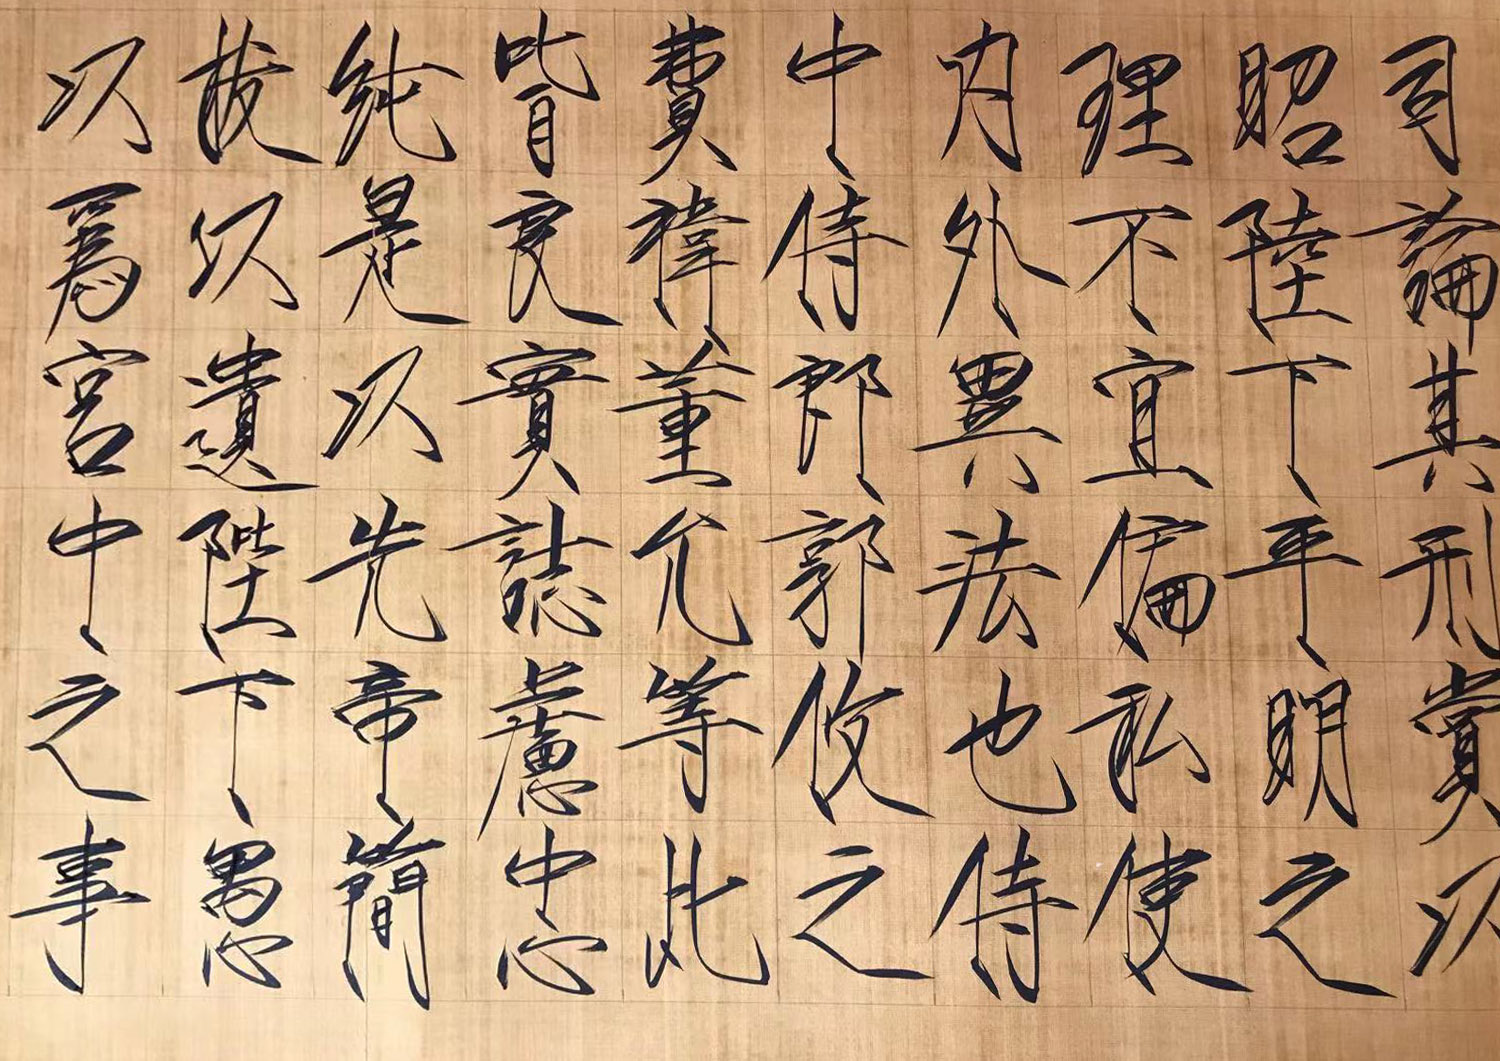 司論其刑賞以
昭陛下平明之
理不宜偏私使
内外異法也侍
中侍郎郭攸之
費禕董允等此
皆良實誌慮忠
純是以先帝簡
拔以遺陛下愚
以爲宮中之事